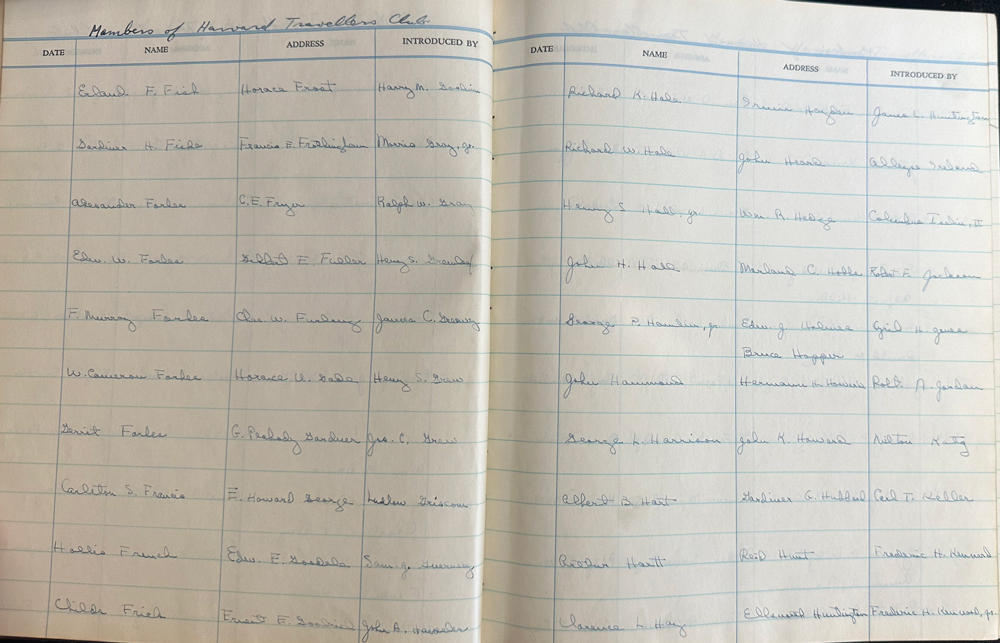 Members of Harvard Travellers Club
DATE NAME ADDRESS INTRODUCED BY
Erland F. Fish Horace Frost Harry M.
Gardiner H. Fiske Francis E. Frothingham Morris Gray, jr.
Alexander Forbes C.E. Fryer Ralph W. Gray
Edw. W. Forbes E Fuller Henry S.
F. Murray Forbes Chas. W. Furlong James C.
W. Cameron Forbes Horace Henry S. Grew
Gerrit Forbes G. Peabody Gardner Jos. C. Grew
Carleton S. Francis E. Howard George Ludlow Griscom
Hollis French Edw. E. Goodale Sam. J. Guernsey
Childs Frick Ernest E. John A.
DATE NAME ADDRESS INTRODUCED BY
Richard K. Hale Irwin Hayden James L. Huntington
Richard W. Hale John Heard Alleyne Ireland
Henry S. Hall, jr. Wm R. Hedge Columbus Iselin, II
John H. Hall Marland C. Hobbs Robt F. Jackson
George P. Hamlin, jr. Edw. J. Holmes H.
Bruce Hopper
John Hammond Hermann Robt. A. Jordan
George L. Harrison John K. Howard Milton Katz
Albert B. Hart Gardiner G. Hubbard Carl T. Keller
Hartt Reid Hunt Frederic H. Kennard
Clarence L. Hay Ellsworth Huntington Frederic H. Kennard, jr.